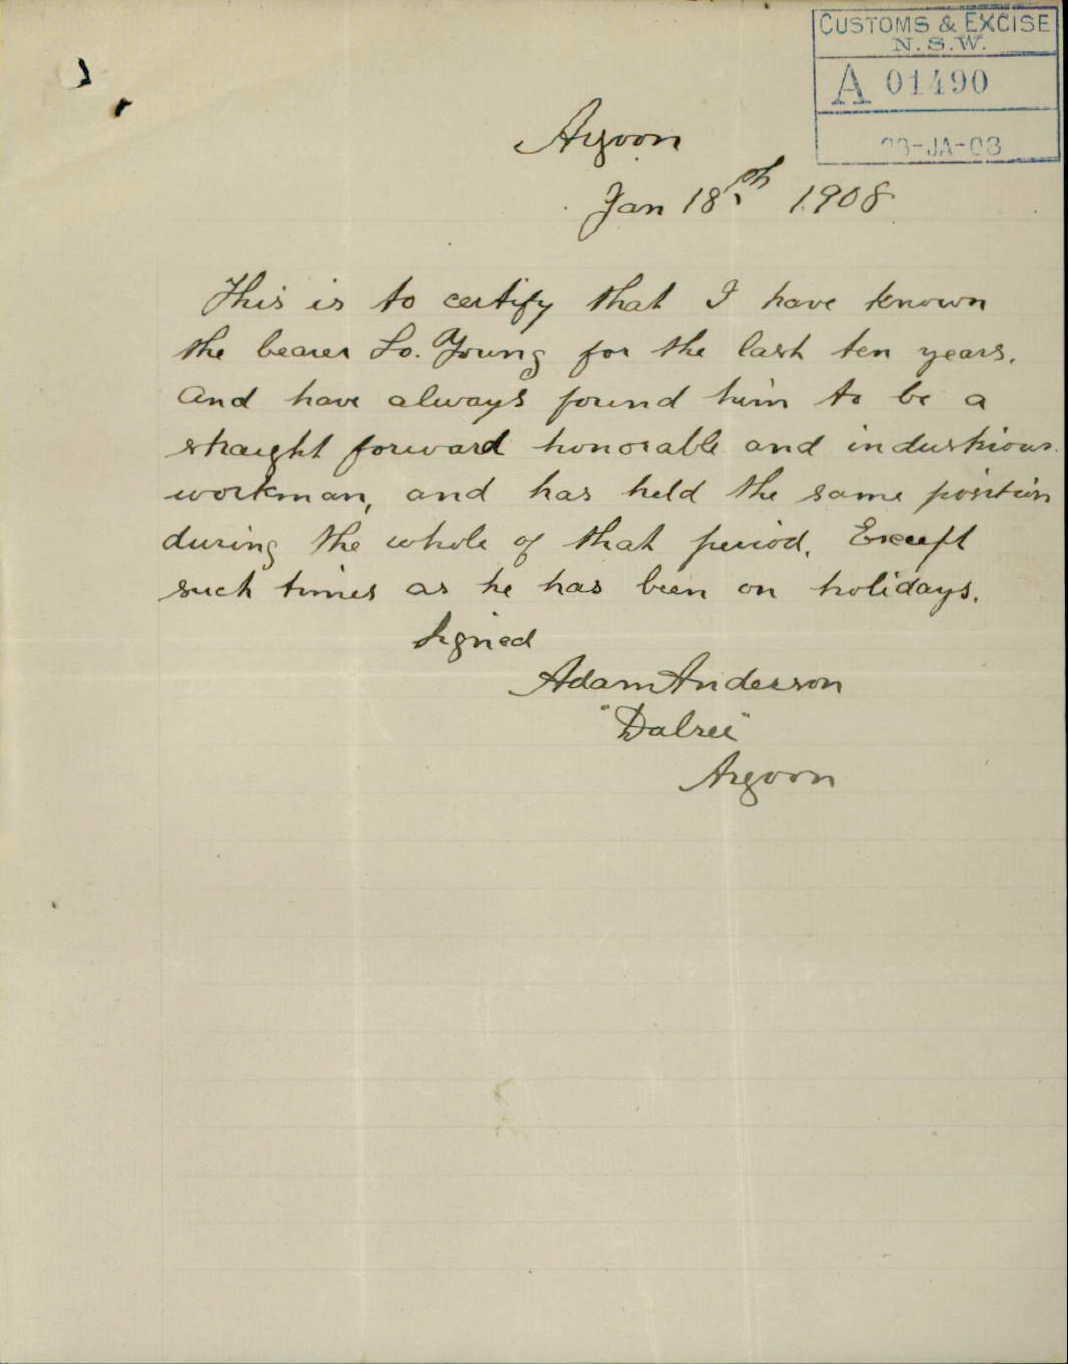 CUSTOMS & EXCISE
N.S.W.
A 01490
23-JA-08
Argoon
Jan 18th 1908
This is to certify that I have known
the bearer Lo. Young for the last ten years.
And have always found him to be a
straight forward honorable and industrious
workman, and has held the same position
during the whole of that period. Except
such times as he has been on holidays.
Signed
Adam Anderson
"Dalree"
Argoon